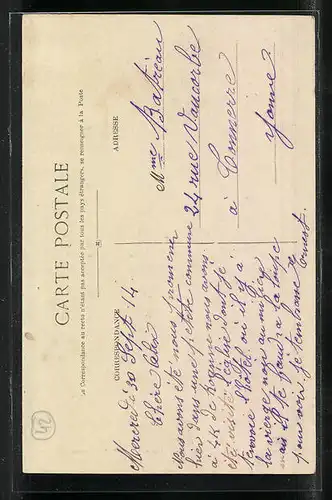 CARTE POSTALE
La Correspondance au recto n'étant pas acceptée par tous les pays étrangers, se renseigner à la Poste
CORRESPONDANCE
ADRESSE
Mercredi 30 Sept 14
Chère
Nous avons été nous promener
hier dans une petite commune
à 4K de nous avons
été visité l'église dont je
t'envoie l'hotel où il y a
la vierge noir au milieu
au
pour voir. je t'embrasse Ernest
Mme Batréau
24 rue Vaucorbe
à Tonnerre
Yonne
42